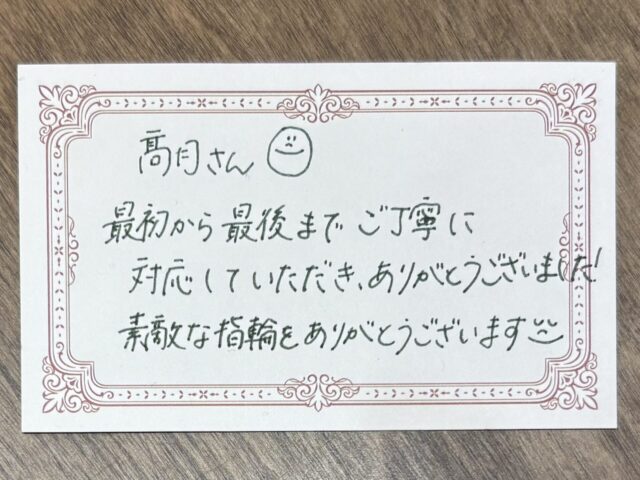 髙月さん
最初から最後までご丁寧に
対応していただき、ありがとうございました!
素敵な指輪をありがとうございます